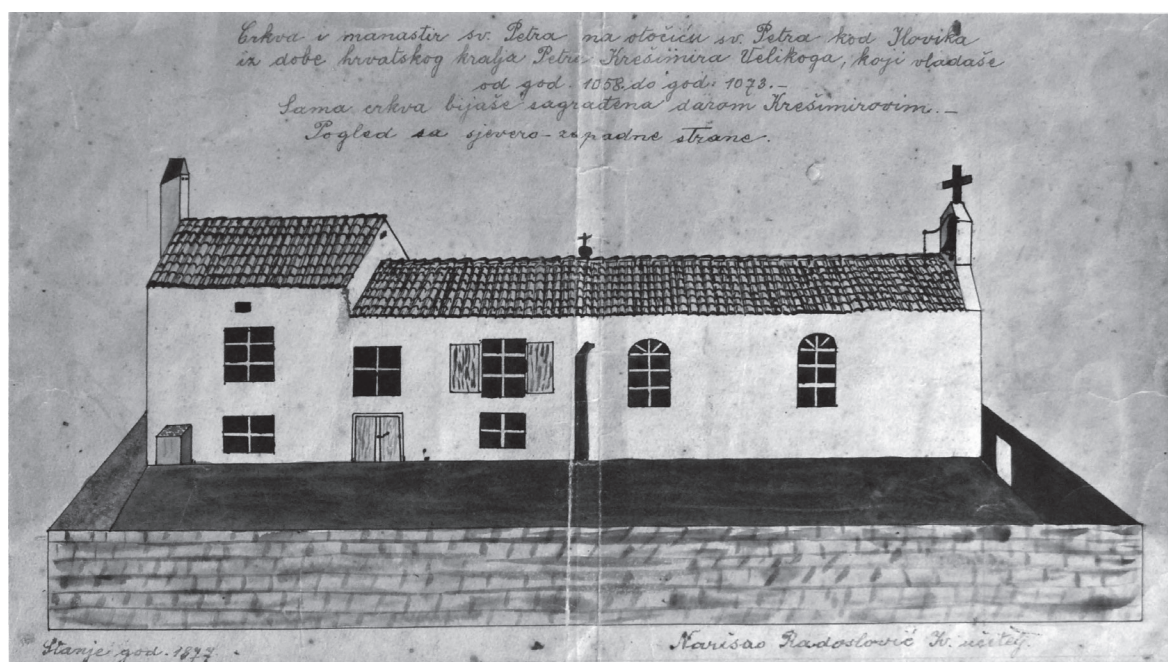 Crkva i manastir sv. Petra na otočiću sv. Petra kod Ilovika
iz dobe hrvatskog kralja Petra Krešimira Velikoga, koji vladaše
od god. 1058. do god. 1073. –
Sama crkva bijaše sagrađena darom Krešimirovim. –
Pogled sa sjevero-zapadne strane.
Stanje god. 1877
Narisao Radoslović Iv. učitelj.